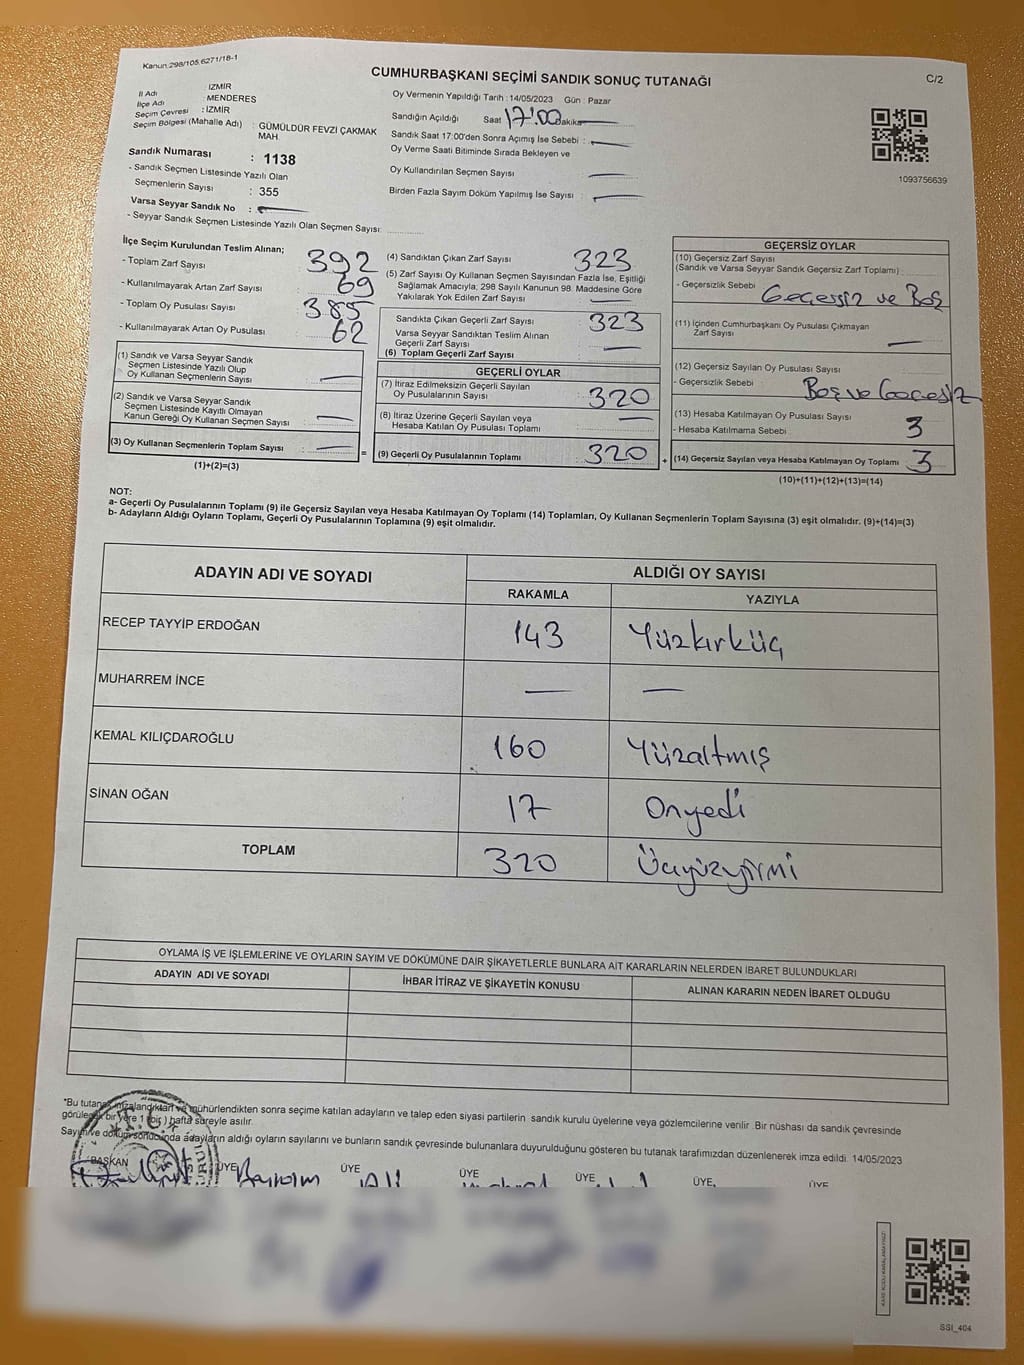 Kanun:298/105,6271/18-1
CUMHURBAŞKANI SEÇİMİ SANDIK SONUÇ TUTANAĞI
C/2
İl Adı : İZMİR
İlçe Adı : MENDERES
Seçim Çevresi : İZMİR
Seçim Bölgesi (Mahalle Adı) : GÜMÜLDÜR FEVZİ ÇAKMAK MAH
Sandık Numarası : 1138
- Sandık Seçmen Listesinde Yazılı Olan
Seçmenlerin Sayısı : 355
Varsa Seyyar Sandık No : —
- Seyyar Sandık Seçmen Listesinde Yazılı Olan Seçmen Sayısı:
Oy Vermenin Yapıldığı Tarih : 14/05/2023 Gün : Pazar
Sandığın Açıldığı Saat 17:00 Dakika —
Sandık Saat 17:00'den Sonra Açımış İse Sebebi : —
Oy Verme Saati Bitiminde Sırada Bekleyen ve
Oy Kullandırılan Seçmen Sayısı —
Birden Fazla Sayım Döküm Yapılmış İse Sayısı : —
1093756639
İlçe Seçim Kurulundan Teslim Alınan;
- Toplam Zarf Sayısı 392
- Kullanılmayarak Artan Zarf Sayısı 69
- Toplam Oy Pusulası Sayısı 385
- Kullanılmayarak Artan Oy Pusulası 62
(1) Sandık ve Varsa Seyyar Sandık
Seçmen Listesinde Yazılı Olup
Oy Kullanan Seçmenlerin Sayısı —
(2) Sandık ve Varsa Seyyar Sandık
Seçmen Listesinde Kayıtlı Olmayan
Kanun Gereği Oy Kullanan Seçmen Sayısı —
(3) Oy Kullanan Seçmenlerin Toplam Sayısı —
(1)+(2)=(3)
(4) Sandıktan Çıkan Zarf Sayısı 323
(5) Zarf Sayısı Oy Kullanan Seçmen Sayısından Fazla İse, Eşitliği
Sağlamak Amacıyla, 298 Sayılı Kanunun 98. Maddesine Göre
Yakılarak Yok Edilen Zarf Sayısı —
Sandıkta Çıkan Geçerli Zarf Sayısı 323
Varsa Seyyar Sandıktan Teslim Alınan
Geçerli Zarf Sayısı —
(6) Toplam Geçerli Zarf Sayısı
GEÇERLİ OYLAR
(7) İtiraz Edilmeksizin Geçerli Sayılan
Oy Pusulalarının Sayısı 320
(8) İtiraz Üzerine Geçerli Sayılan veya
Hesaba Katılan Oy Pusulası Toplamı —
= (9) Geçerli Oy Pusulalarının Toplamı 320 +
GEÇERSİZ OYLAR
(10) Geçersiz Zarf Sayısı
(Sandık ve Varsa Seyyar Sandık Geçersiz Zarf Toplamı)
- Geçersizlik Sebebi Geçersiz ve Boş
(11) İçinden Cumhurbaşkanı Oy Pusulası Çıkmayan
Zarf Sayısı —
(12) Geçersiz Sayılan Oy Pusulası Sayısı
- Geçersizlik Sebebi Boş ve Geçersiz
(13) Hesaba Katılmayan Oy Pusulası Sayısı 3
- Hesaba Katılmama Sebebi
(14) Geçersiz Sayılan veya Hesaba Katılmayan Oy Toplamı 3
(10)+(11)+(12)+(13)=(14)
NOT:
a- Geçerli Oy Pusulalarının Toplamı (9) ile Geçersiz Sayılan veya Hesaba Katılmayan Oy Toplamı (14) Toplamları, Oy Kullanan Seçmenlerin Toplam Sayısına (3) eşit olmalıdır. (9)+(14)=(3)
b- Adayların Aldığı Oyların Toplamı, Geçerli Oy Pusulalarının Toplamına (9) eşit olmalıdır.
ADAYIN ADI VE SOYADI
ALDIĞI OY SAYISI
RAKAMLA YAZIYLA
RECEP TAYYİP ERDOĞAN 143 Yüzkırküç
MUHARREM İNCE — —
KEMAL KILIÇDAROĞLU 160 Yüzaltmış
SİNAN OĞAN 17 Onyedi
TOPLAM 320 Üçyüzyirmi
OYLAMA İŞ VE İŞLEMLERİNE VE OYLARIN SAYIM VE DÖKÜMÜNE DAİR ŞİKAYETLERLE BUNLARA AİT KARARLARIN NELERDEN İBARET BULUNDUKLARI
ADAYIN ADI VE SOYADI İHBAR İTİRAZ VE ŞİKAYETİN KONUSU ALINAN KARARIN NEDEN İBARET OLDUĞU
"Bu tutanak imzalandıktan ve mühürlendikten sonra seçime katılan adayların ve talep eden siyasi partilerin sandık kurulu üyelerine veya gözlemcilerine verilir. Bir nüshası da sandık çevresinde
görülecek bir yere 1 (bir) hafta süreyle asılır.
Sayım ve döküm sonucunda adayların aldığı oyların sayılarını ve bunların sandık çevresinde bulunanlara duyurulduğunu gösteren bu tutanak tarafımızdan düzenlenerek imza edildi. 14/05/2023
BAŞKAN ÜYE ÜYE ÜYE ÜYE ÜYE, ÜYE
Bayram Ali
T.C.
SSI_404